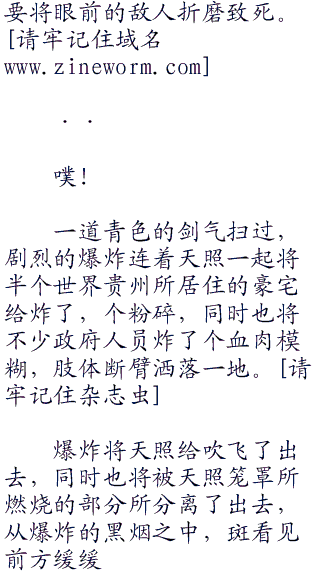 要将眼前的敌人折磨致死。
[请牢记住域名
www.zineworm.com]
. .
噗!
一道青色的剑气扫过，
剧烈的爆炸连着天照一起将
半个世界贵州所居住的豪宅
给炸了，个粉碎，同时也将
不少政府人员炸了个血肉模
糊，肢体断臂洒落一地。[请
牢记住杂志虫]
爆炸将天照给吹飞了出
去，同时也将被天照笼罩所
燃烧的部分所分离了出去，
从爆炸的黑烟之中，斑看见
前方缓缓